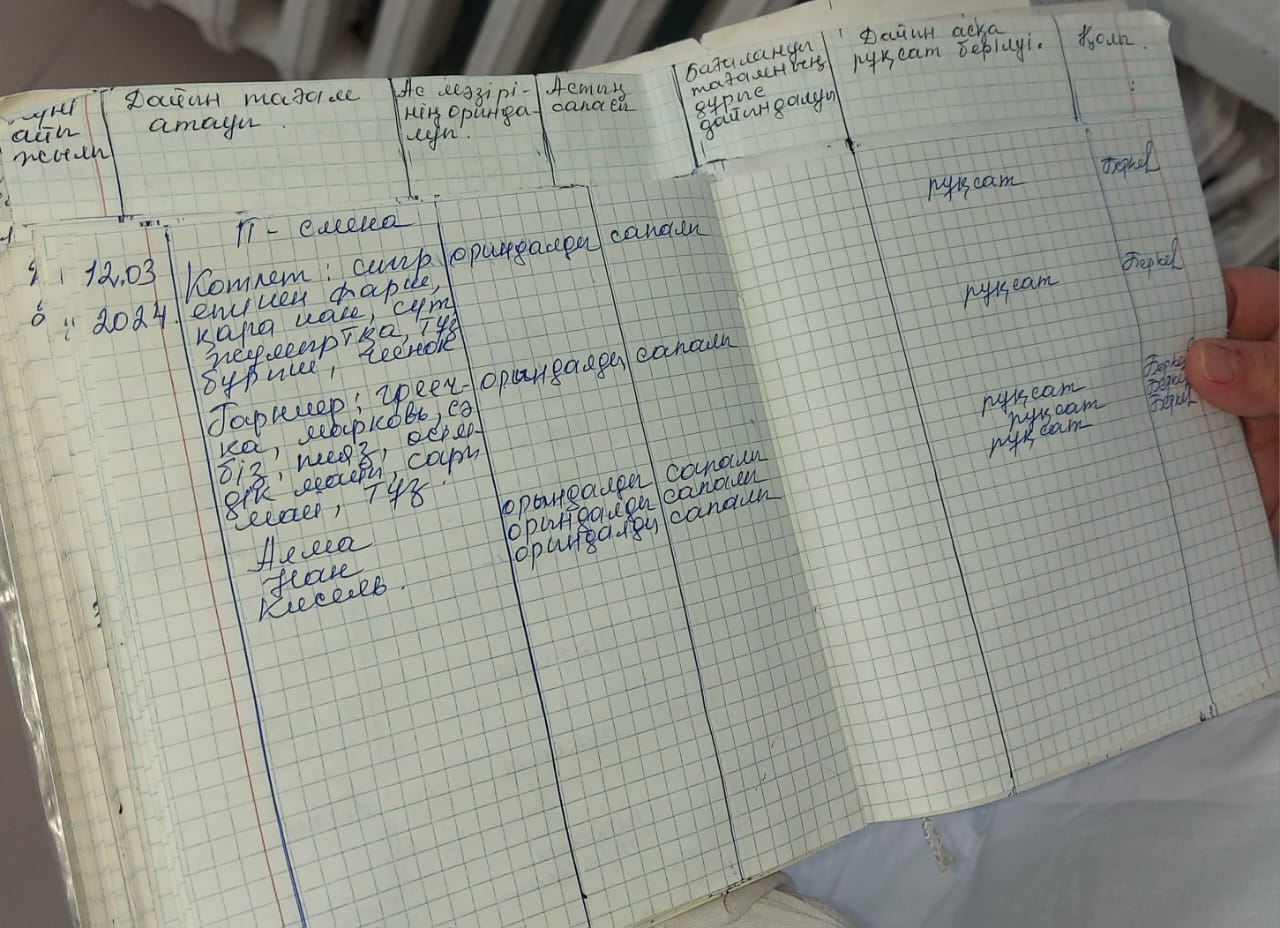 күні
айы
жылы
Дайын тағам
атауы.
Ас мәзірі-
нің орында-
луы.
Астың
сапасы
Бағалануы
тағамның
дұрыс
дайындалуы
Дайын асқа
рұқсат берілуі.
Қолы.
12.03
2024.
II - смена
Котлет: сиыр
етінен фарш,
қара нан, сүт
жұмыртқа, тұз
бұрыш, чеснок
орындалды сапалы рұқсат
Гарнир: греч-
ка, марковь, сә
біз, пияз, өсім-
дік майы, сары
май, тұз.
орындалды сапалы рұқсат
Алма орындалды сапалы рұқсат
Нан орындалды сапалы рұқсат
Кисель. орындалды сапалы рұқсат